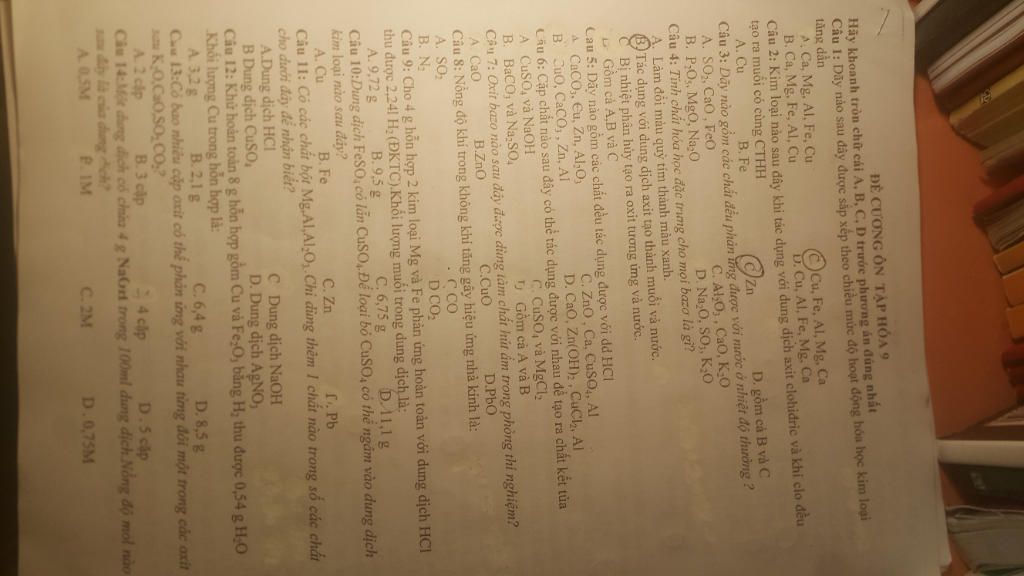 ĐỀ CƯƠNG ÔN TẬP HÓA 9
Hãy khoanh tròn chữ cái A, B, C, D trước phương án đúng nhất
Câu 1: Dãy nào sau đây được sắp xếp theo chiều mức độ hoạt động hóa học kim loại
tăng dần
A. Ca, Mg, Al, Fe, Cu C. Cu, Fe, Al, Mg, Ca
B. Ca, Mg, Fe, Al, Cu D. Cu, Al, Fe, Mg, Ca
Câu 2: Kim loại nào sau đây khi tác dụng với dung dịch axit clohiđric và khí clo đều
tạo ra muối có cùng CTHH
A. Cu B. Fe C. Zn D. gồm cả B và C
Câu 3: Dãy nào gồm các chất đều phản ứng được với nước ở nhiệt độ thường ?
A. SO₂, CaO , FeO C. Al₂O₃ , CaO, K₂O
B. P₂O₅, MgO, Na₂O D. Na₂O, SO₂, K₂O
Câu 4: Tính chất hóa học đặc trưng cho mọi bazo là gì?
A. Làm đổi màu quỳ tím thành màu xanh.
B. Tác dụng với dung dịch axit tạo thành muối và nước.
C. Bị nhiệt phân hủy tạo ra oxit tương ứng và nước.
Gồm cả A,B và C
Câu 5: Dãy nào gồm các chất đều tác dụng được với dd HCl
A CaCO₃, Cu, Zn, Al₂O₃ C. ZnO , Ca, CuSO₄, Al
B. CuO, CaCO₃, Zn, Al D. CaO, Zn(OH)₂ , CuCl₂, Al
Câu 6: Cặp chất nào sau đây có thể tác dụng được với nhau để tạo ra chất kết tủa
A CuSO₄ và NaOH C. CuSO₄ và MgCl₂
B. BaCO₃ và Na₂SO₄ Gồm cả A và B
Câu 7: Oxit bazo nào sau đây được dùng làm chất hút ẩm trong phòng thí nghiệm?
A CaO B.ZnO C.CuO D.PbO
Câu 8: Nồng độ khí trong không khí tăng gây hiệu ứng nhà kính là:
A. SO₂ C CO
B. N₂ D CO₂
Câu 9: Cho 4 g hỗn hợp 2 kim loại Mg và Fe phản ứng hoàn toàn với dung dịch HCl
thu được 2,24l H₂ (ĐKTC).Khối lượng muối trong dung dịch là:
A. 9,72 g B. 9,5 g C. 6,75 g D. 11,1 g
Câu 10:Dung dịch FeSO₄ có lẫn CuSO₄.Để loại bỏ CuSO₄ có thể ngâm vào dung dịch
kim loại nào sau đây?
A. Cu B. Fe C. Zn D. Pb
Câu 11: Có các chất bột Mg,Al,Al₂O₃.Chỉ dùng thêm 1 chất nào trong số các chất
cho dưới đây để nhận biết?
A.Dung dịch HCl C Dung dịch NaOH
B Dung dịch CuSO₄ D. Dung dịch AgNO₃
Câu 12: Khử hoàn toàn 8 g hỗn hợp gồm Cu và Fe₂O₃ bằng H₂ thu được 0,54 g H₂O
.Khối lượng Cu trong hỗn hợp là:
A. 3,2 g B. 2,1 g C. 6,4 g D. 8,5 g
Câu 13:Có bao nhiêu cặp oxit có thể phản ứng với nhau từng đôi một trong các oxit
sau K₂O,CaO,SO₂,CO₂?
A. 2 cặp B. 3 cặp 4 cặp D 5 cặp
Câu 14:Một dung dịch có chứa 4 g NaOH trong 100ml dung dịch.Nồng độ mol nào
sau đây là của dung dịch?
A. 0,5M B. 1M C. 2M D . 0,75M